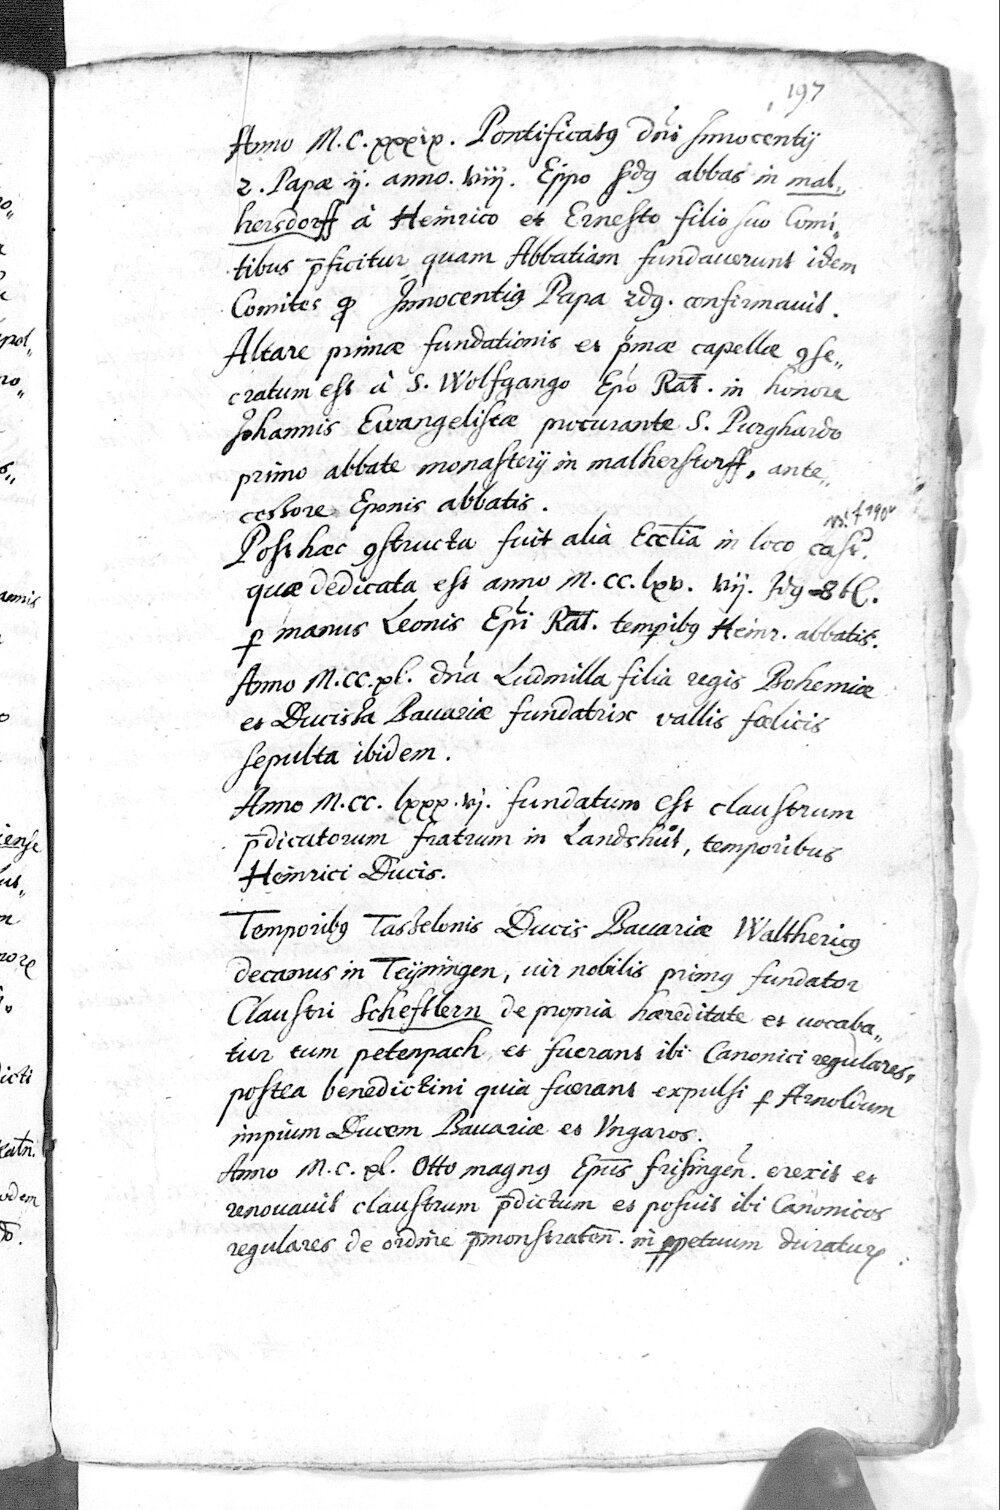 197
Anno M.C.xxxix. Pontificatꝯ dn̄i Innocentij
2. Papæ ij. anno. viij. Eppo s̄dꝯ abbas in mal„
hersdorff à Heinrico et Ernesto filio suo Comi„
tibus p̄ficitur quam Abbatiam fundaverunt idem
Comites Innocentiꝯ Papa 2dꝯ. confirmavit.
Altare primæ fundationis et p̄mæ capellæ ꝯse„
cratum est à S. Wolfgango Epō Rat̄. in honore
Johannis Ewangelistæ procurante S. Purghardo
primo abbate monasterij in malherstorff, ante„
cessore Eponis abbatis.
f 190v
Post hæc ꝯstructa fuit alia Eccl̄ia in loco cast.
quæ dedicata est anno M.CC.lxv. vij. Idꝯ 8bl.
ꝑ manus Leonis Epī Rat̄. tempibꝯ Heinr. abbatis.
Anno M.CC.xl. dn̄a Ludmilla filia regis Bohemiæ
et Ducissa Bauariæ fundatrix vallis fœlicis
sepulta ibidem.
Anno M.CC.lxxx.vj. fundatum est claustrum
p̄dicatorum fratrum in Landshůt, temporibus
Heinrici Ducis.
Temporibꝯ Tasselonis Ducis Bauariæ Walthericꝯ
decanus in Teÿningen, uir nobilis primꝯ fundator
Claustri Scheftlern de propria hæreditate et uocaba„
tur tum peterpach et fuerant ibi Canonici regulares,
postea benedictini quia fuerant expulsi ꝑ Arnoldum
impium Ducem Bauariæ et Vngaros.
Anno M.C.xl. Otto magnꝯ Ep̄us frisingen̄. erexit et
renouauit claustrum p̄dictum et posuit ibi Canonicos
regulares de ordine p̄monstraten̄. in ꝑpetuum duraturꝭ